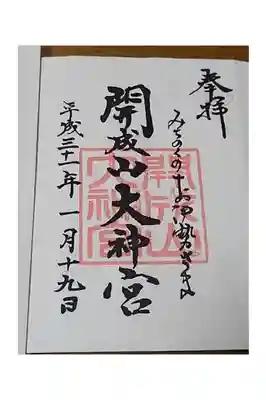 奉拝
みちのくのお伊勢さま
開成山大神宮
平成三十一年一月十九日